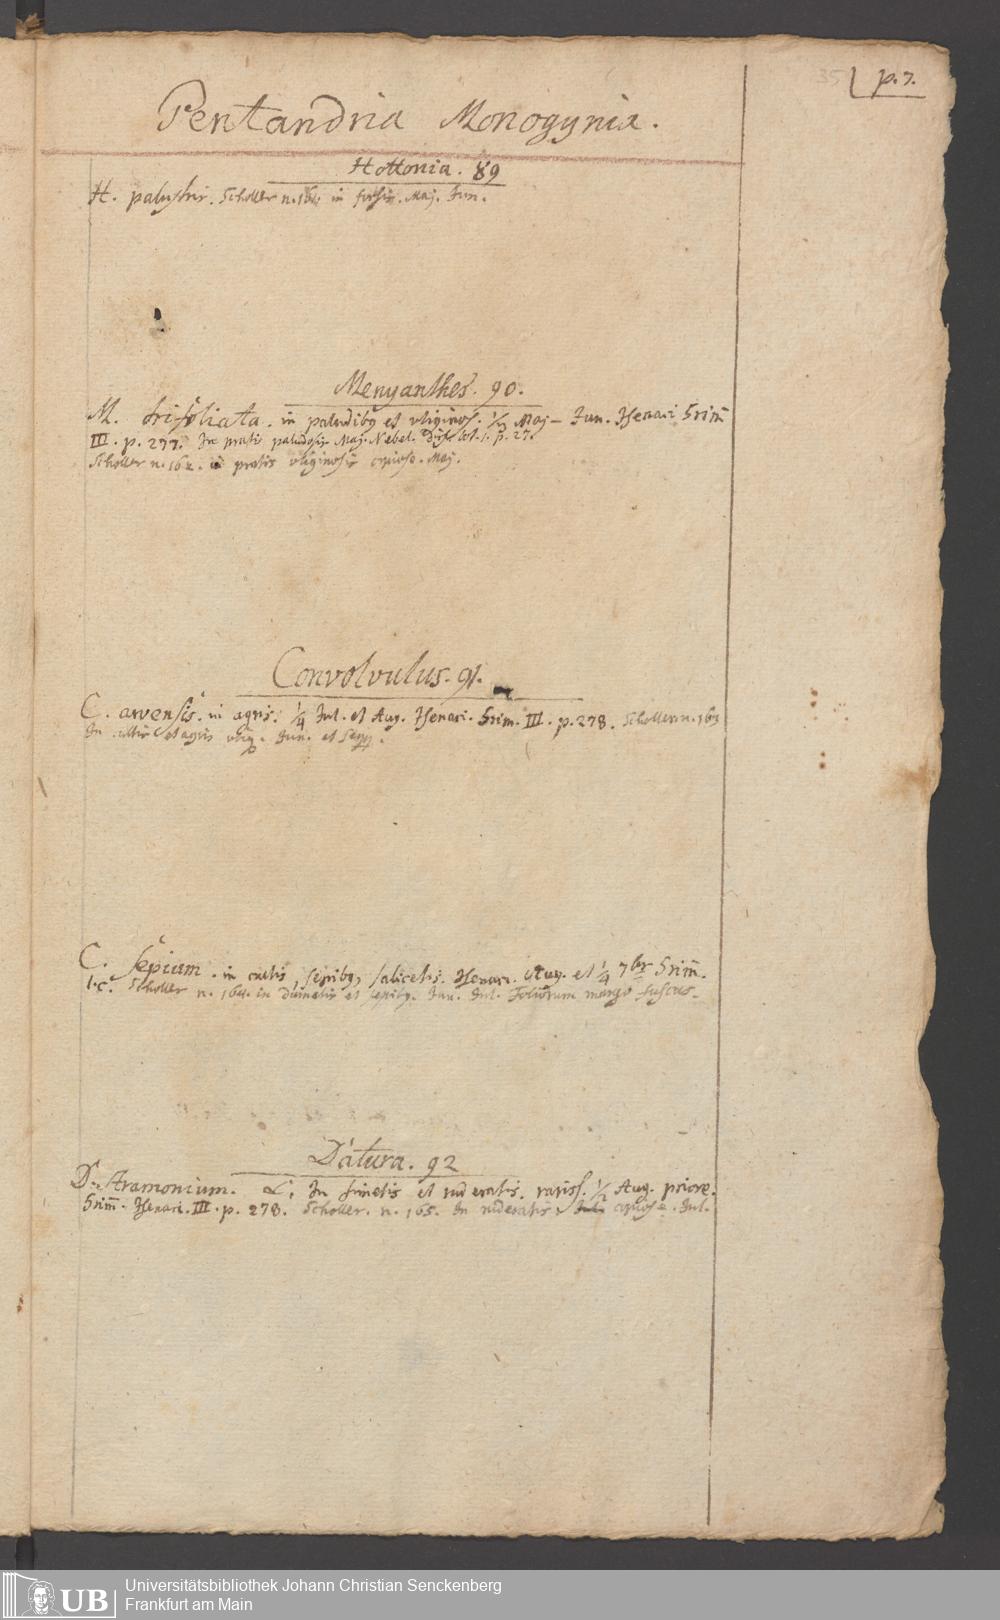 35 p. 7.
Pentandria Monogynia.
Hottonia. 89
H. palustris. Scholler n. 161. in fossis. Maj. Jun.
Menyanthes. 90.
M. trifoliata. in paludibq et uliginos. 1/2 Maj – Jun. Isenaci Grim̄
III. p. 277. In pratis paludosis Maj. Nebel. p. 27.
Scholler n. 162. in pratis uliginosis copiose. Maj.
Convolvulus. 91.
C. arvensis. in agris. 1/4 Jul. et Aug. Isenaci. Grim. III. p. 278. Scholler n. 163
In cultis et agris ubiq. Jun. et seqq.
C. sepium. in cultis, sepibq, salicetis. Isenaci. Aug. et 1/4 7br Grim̄.
l. c. Scholler n. 164. in dumetis et sepibq. Jun. Jul. Foliorum margo fuscus.
Datura. 92
D. stramonium. L. In fimetis et ruderatis. rariss. 1/2 Aug. priore.
Grim̄. Isenaci. III. p. 278. Scholler. n. 165. In ruderatis copiose. Jul.
Universitätsbibliothek Johann Christian Senckenberg
UB Frankfurt am Main